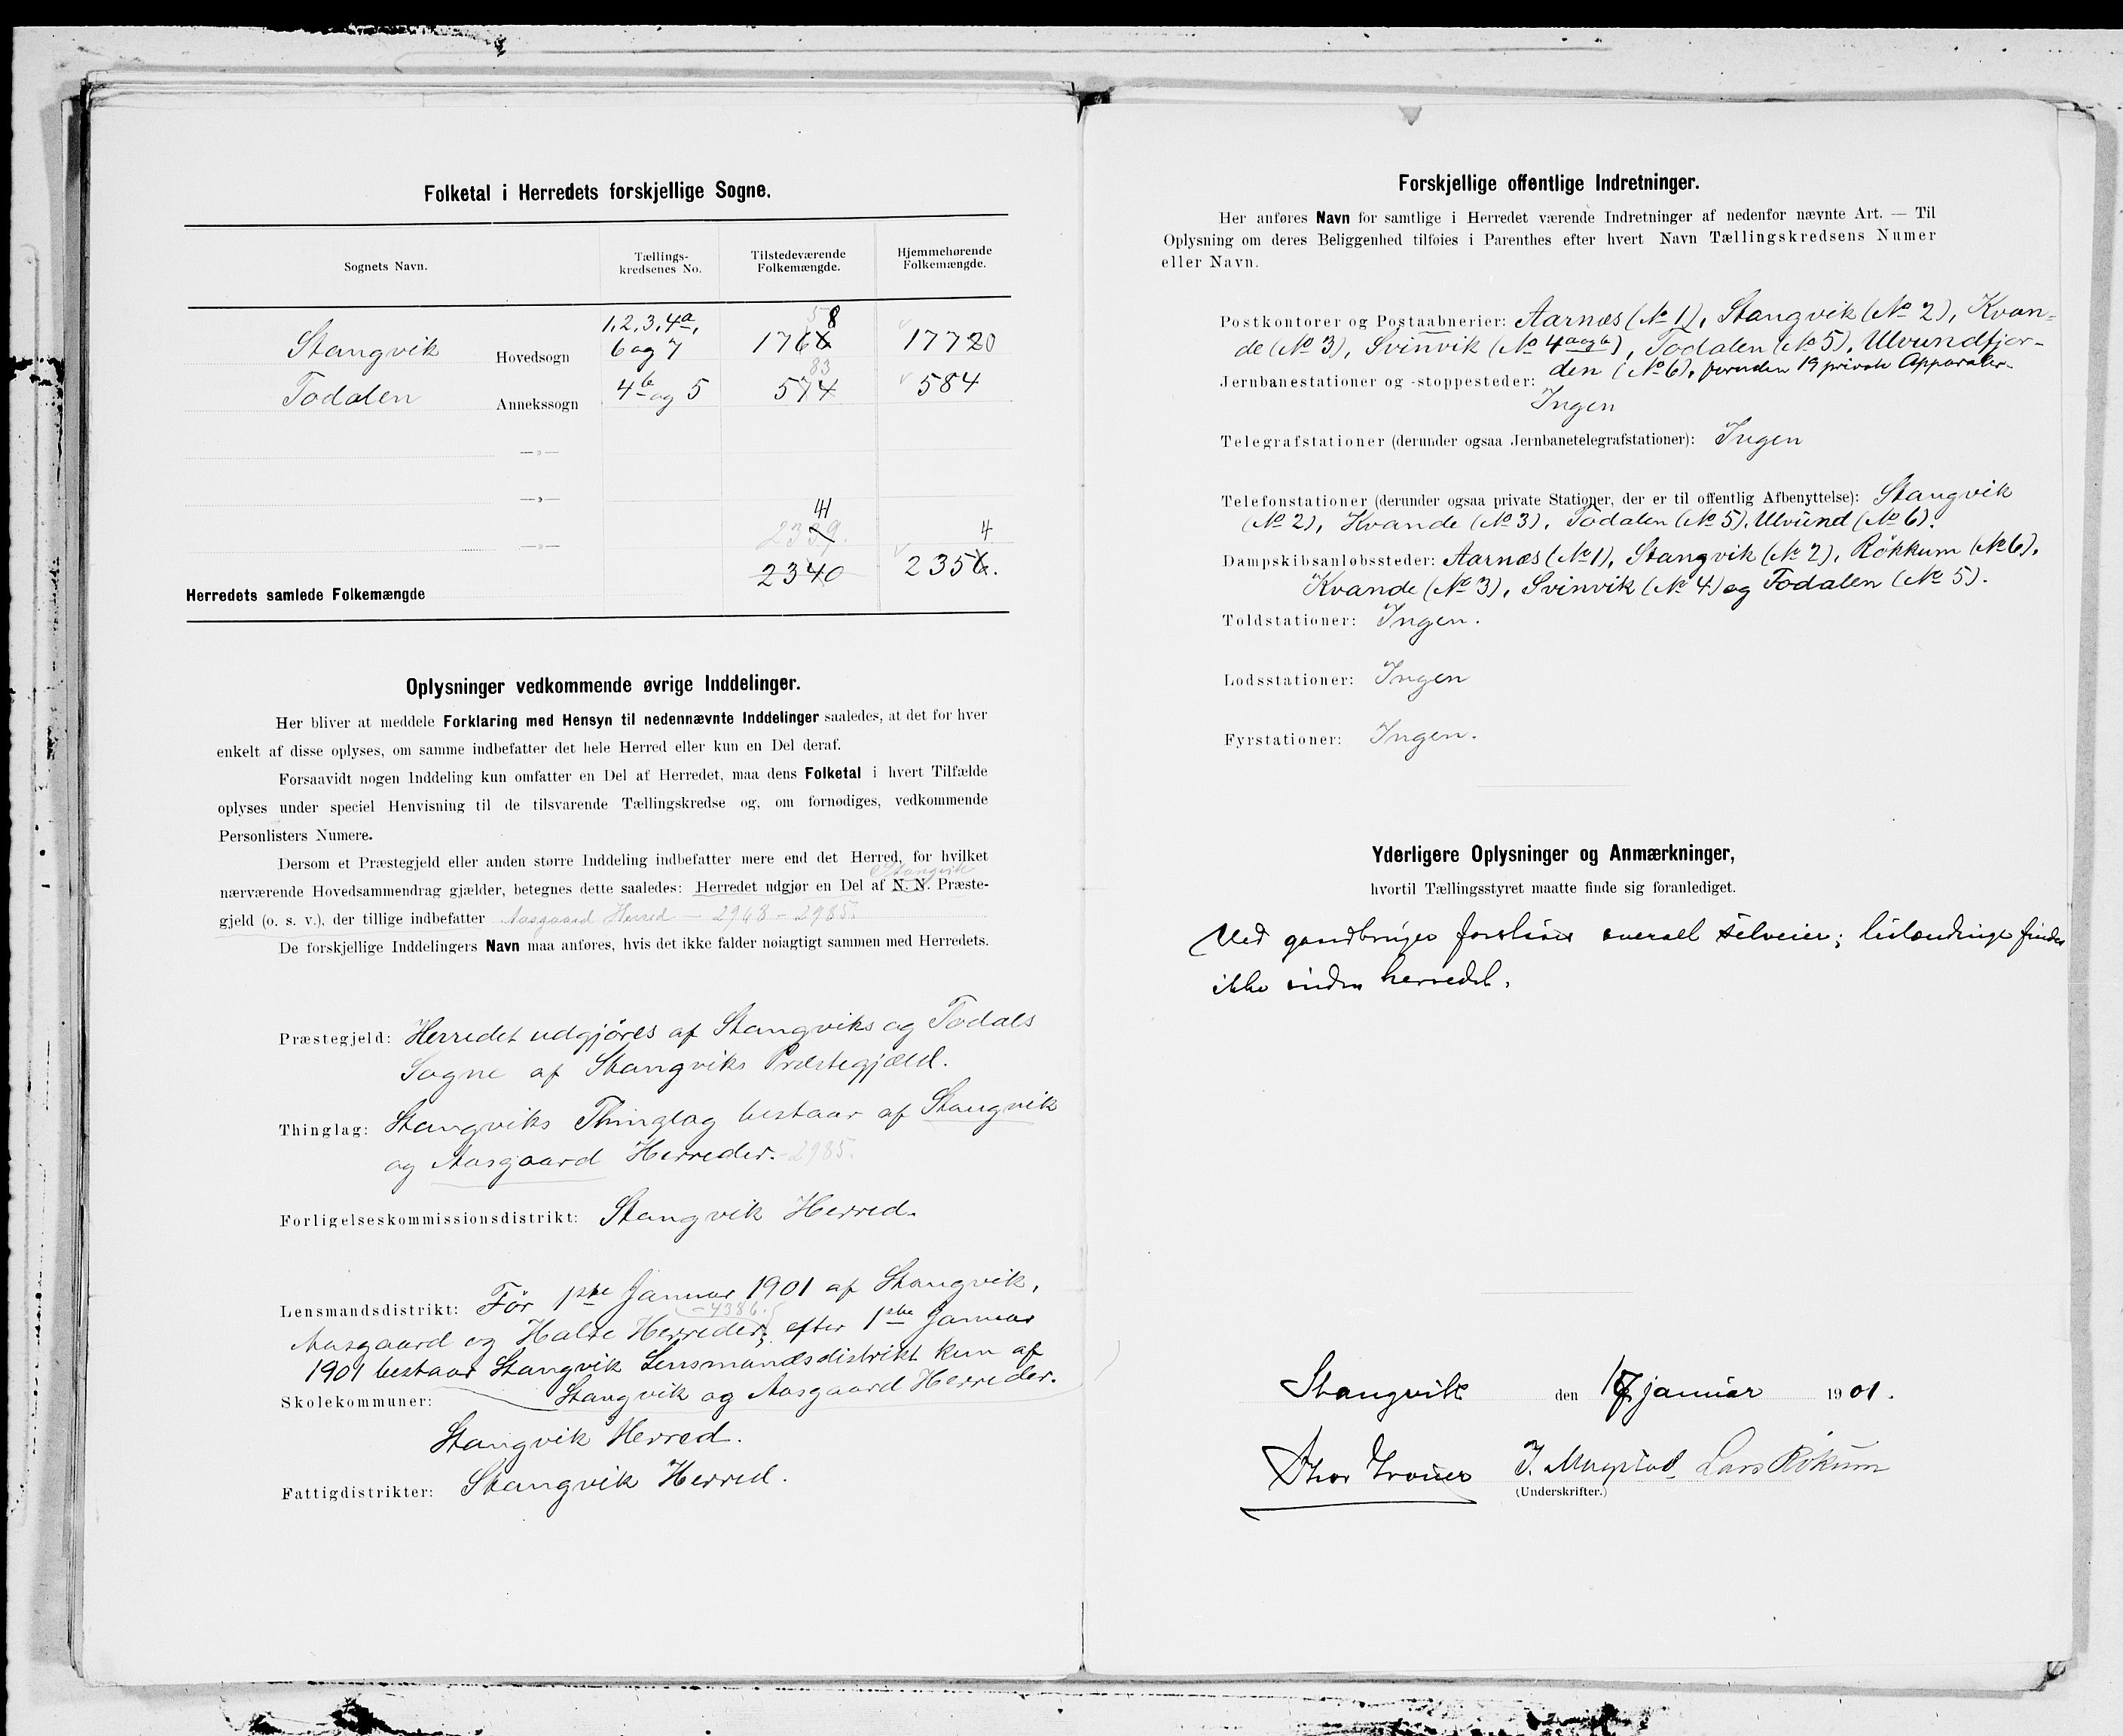 Folketal i Herredets forskjellige Sogne.
Sognets Navn.
Tællings-
kredsenes No.
Tilstedeværende
Folkemængde.
Hjemmehørende
Folkemængde.
1, 2, 3, 4a,
58
Stangvik Hovedsogn 6 og 7 1766 17720
83
Todalen Annekssogn 4b og 5 574 584
— » —
— » —
41
— » — 2339. 4
Herredets samlede Folkemængde 2340 2356.
Oplysninger vedkommende øvrige Inddelinger.
Her bliver at meddele Forklaring med Hensyn til nedennævnte Inddelinger saaledes, at det for hver
enkelt af disse oplyses, om samme indbefatter det hele Herred eller kun en Del deraf.
Forsaavidt nogen Inddeling kun omfatter en Del af Herredet, maa dens Folketal i hvert Tilfælde
oplyses under speciel Henvisning til de tilsvarende Tællingskredse og, om fornødiges, vedkommende
Personlisters Numere.
Dersom et Præstegjeld eller anden større Inddeling indbefatter mere end det Herred, for hvilket
Stangvik
nærværende Hovedsammendrag gjælder, betegnes dette saaledes: Herredet udgjør en Del af N. N. Præste-
gjeld (o. s. v.), der tillige indbefatter Aasgaard Herred — 2968 - 2985.
De forskjellige Inddelingers Navn maa anføres, hvis det ikke falder nøiagtigt sammen med Herredets.
Præstegjeld: Herredet udgjöres af Stangviks og Todals
Sogne af Stangviks Præstegjæld.
Thinglag: Stangviks Thinglag bestaar af Stangvik
og Aasgaard Herreder. - 2985.
Forligelseskommissionsdistrikt: Stangvik Herred.
Lensmandsdistrikt: För 1ste Januar 1901 af Stangvik,
- 4386.
Aasgaard og Halse Herreder; efter 1ste Januar
1901 bestaar Stangvik Lensmandsdistrikt kun af
Skolekommuner: Stangvik og Aasgaard Herreder.
Stangvik Herred.
Fattigdistrikter: Stangvik Herred.
Forskjellige offentlige Indretninger.
Her anføres Navn for samtlige i Herredet værende Indretninger af nedenfor nævnte Art. — Til
Oplysning om deres Beliggenhed tilføies i Parenthes efter hvert Navn Tællingskredsens Numer
eller Navn.
Postkontorer og Postaabnerier: Aarnæs (No 1), Stangvik (No 2), Kvan-
de (No 3), Svinvik (No 4a og b), Todalen (No 5), Ulvundfjor-
den (No 6), foruden 19 private Apparater.
Jernbanestationer og -stoppesteder:
Ingen
Telegrafstationer (derunder ogsaa Jernbanetelegrafstationer): Ingen
Telefonstationer (derunder ogsaa private Stationer, der er til offentlig Afbenyttelse): Stangvik
(No 2), Kvande (No 3), Todalen (No 5), Ulvund (No 6).
Dampskibsanløbssteder: Aarnæs (No 1), Stangvik (No 2), Rökkum (No 6),
Kvande (No 3), Svinvik (No 4) og Todalen (No 5).
Toldstationer: Ingen.
Lodsstationer: Ingen
Fyrstationer: Ingen.
Yderligere Oplysninger og Anmærkninger,
hvortil Tællingsstyret maatte finde sig foranlediget.
Ved gaardbruger overall selveier; findes
ikke inden herredet.
Stangvik den 17 januar 1901.
Lars Rökum
(Underskrifter.)